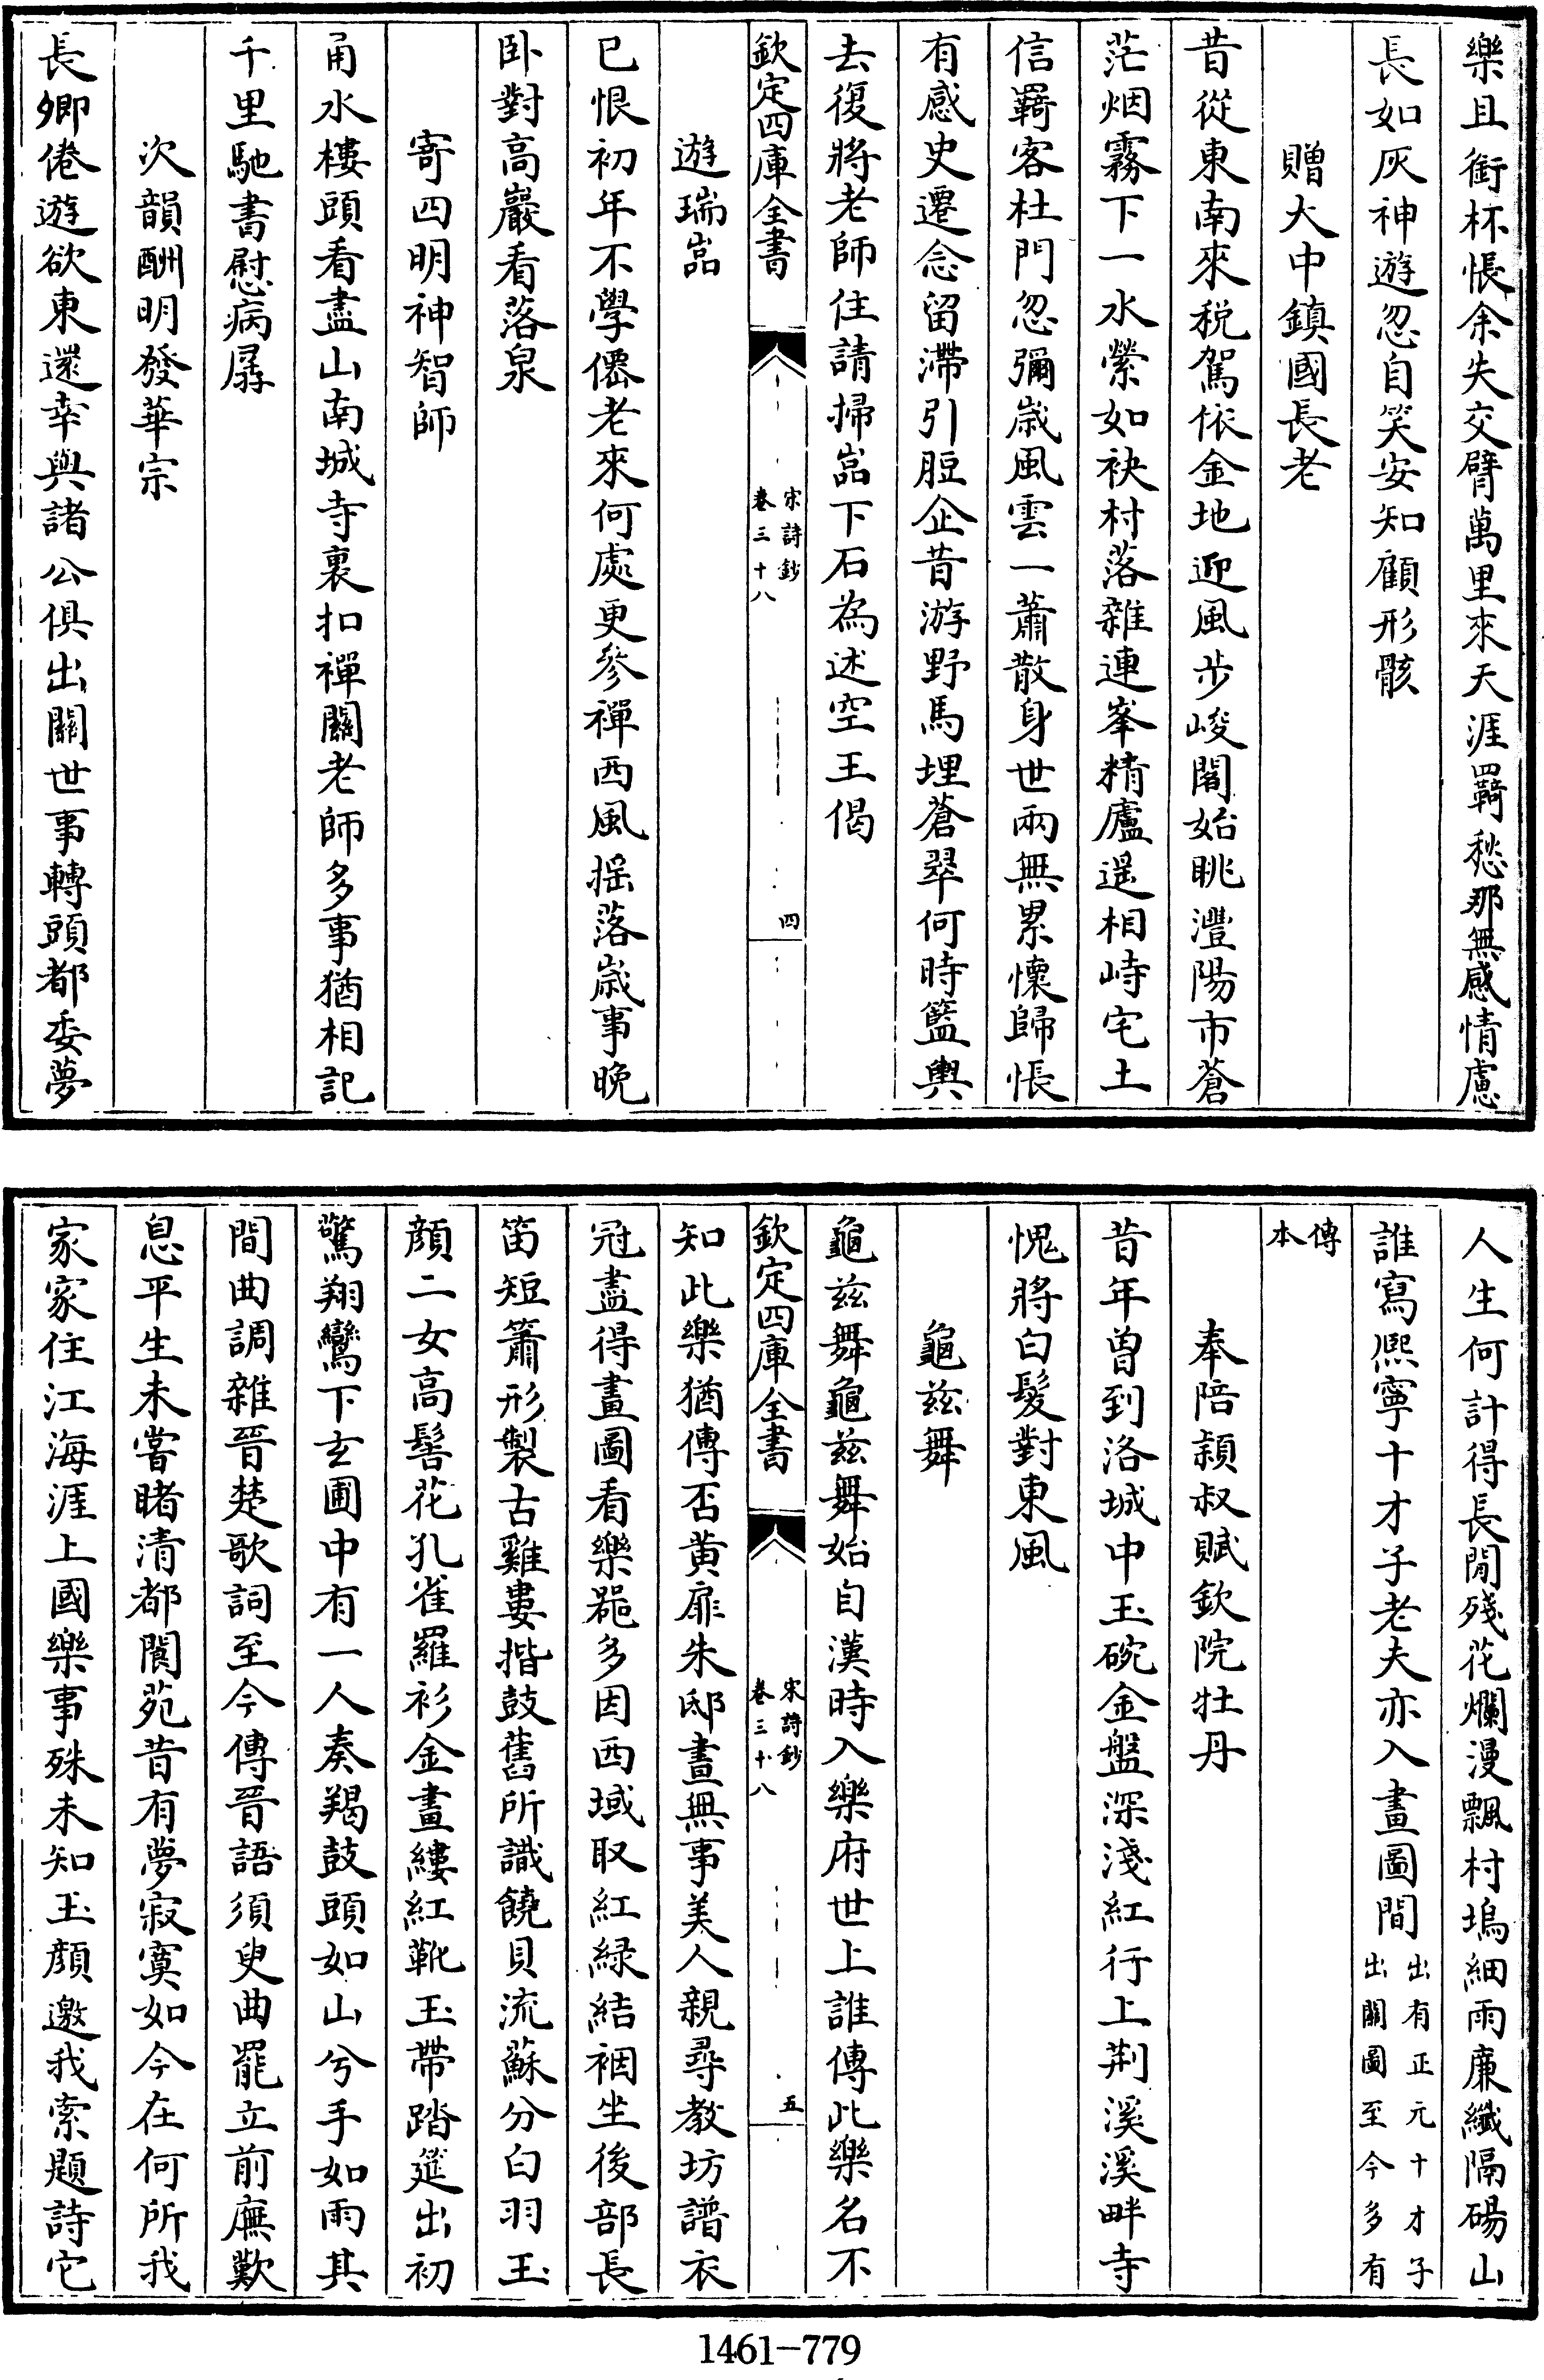 樂且銜杯悵余失交臂萬里來天涯羈愁那無感情慮
長如灰神遊忽自笑安知顧形骸
贈大中鎮國長老
昔從東南來稅駕依金地迎風步峻閣始眺灃陽市蒼
茫烟霧下一水縈如袂村落雜連峯精廬遥相峙宅土
信羇客杜門忽彌歳風雲一蕭散身世兩無累懷歸悵
有感史遷念留滯引脰企昔游野馬埋蒼翠何時籃輿
去復將老師住請掃嵓下石為述空王偈
欽定四庫全書
宋詩鈔
卷三十八
四
遊瑞嵓
已恨初年不學僊老來何處更參禪西風揺落歳事晚
卧對高巖看落泉
寄四明神智師
甬水樓頭看盡山南城寺裏扣禪關老師多事猶相記
千里馳書慰病孱
次韻酬明發華宗
長卿倦遊欲東還幸與諸公俱出關世事轉頭都委夢
人生何計得長閒殘花爛漫飄村塢細雨廉纖隔碭山
誰寫熈寧十才子老夫亦入畫圖間出有正元十才子出關圖至今多有
傳本
奉陪頴叔賦欽院牡丹
昔年曽到洛城中玉碗金盤深淺紅行上荆溪溪畔寺
愧將白髮對東風
龜兹舞
龜兹舞龜兹舞始自漢時入樂府世上誰傳此樂名不
欽定四庫全書
宋詩鈔
卷三十八
五
知此樂猶傳否黄扉朱邸晝無事美人親尋教坊譜衣
冠盡得畫圖看樂噐多因西域取紅緑結裀坐後部長
笛短簫形製古雞婁揩鼓舊所識饒貝流蘇分白羽玉
顔二女高髻花孔雀羅衫金畫縷紅靴玉帶踏筵出初
驚翔鸞下玄圃中有一人奏羯鼓頭如山兮手如雨其
間曲調雜晉楚歌詞至今傳晉語須臾曲罷立前廡歎
息平生未甞睹清都閬苑昔有夢寂寞如今在何所我
家家住江海涯上國樂事殊未知玉顔邀我索題詩它
1461-779